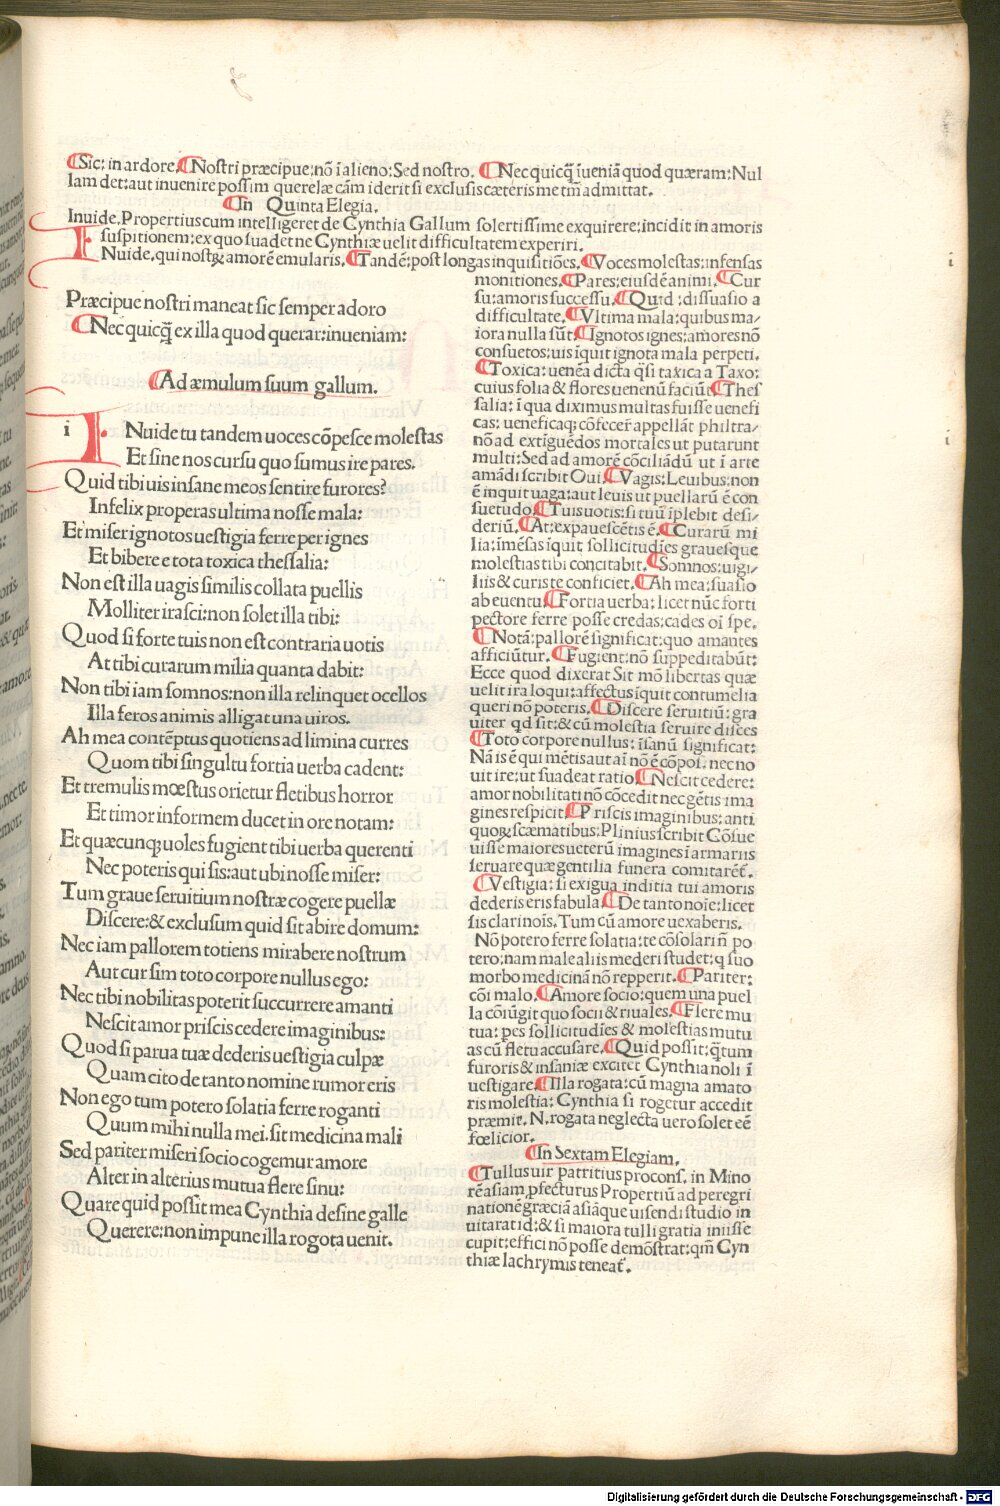 ¶Sic: in ardore.¶Nostri præcipue:nō ī alieno:Sed nostro. ¶Nec quicq̄ īueniā quod quæram:Nul
lam det:aut inuenire possim querelæ cām id erit si exclusis cæteris me tm̄ admittat.
¶In Quinta Elegia.
Inuide.Propertius cum intelligeret de Cynthia Gallum solertissime exquirere:incidit in amoris
suspitionem:ex quo suadet ne Cynthiæ uelit difficultatem experiri.
INuide,qui nostꝝ amorē emularis.¶Tandē:post longas inquisitiōes.¶Voces molestas:infensas
monitiones.¶Pares:eiusdē animi.¶Cur
su:amoris successu.¶Quid :dissuasio a
difficultate.¶Vltima mala:quibus ma/
iora nulla sūt.¶Ignotos ignes:amores nō
consuetos:uis īquit ignota mala perpeti.
¶Toxica: uenēa dicta q̄si taxica a Taxo:
cuius folia & flores uenenū faciūt.¶Thes
salia: ī qua diximus multas fuisse uenefi
cas: ueneficaq; cōfecer̄ appellāt philtra/
nō ad extīguēdos mortales ut putarunt
multi:Sed ad amorē cōciliādū ut ī arte
amādi scribit Oui.¶Vagis:Leuibus:non
ē inquit uaga:aut leuis ut puellarū ē con
suetudo.¶Tuis uotis:si tuū īplebit desi/
deriū.¶At:expauescētis ē.¶Curarū mi
lia:īmēsas īquit sollicitudīes grauesque
molestias tibi concitabit.¶Somnos:uigi/
liis & curis te conficiet.¶Ah mea:suasio
ab euentu.¶Fortia uerba:licet nūc forti
pectore ferre posse credas:cades oī spe.
¶Notā:pallorē significat:quo amantes
afficiūtur.¶Fugient:nō suppeditabūt:
Ecce quod dixerat Sit mō libertas quæ
uelit ira loqui:affectus īquit contumelia
queri nō poteris.¶Discere seruitiū:gra
uiter qd sit:& cū molestia seruire disces
¶Toto corpore nullus: īsanū significat:
Nā is ē qui mētis aut aī nō ē cōpos, nec no
uit ire:ut suadeat ratio¶Nescit cedere:
amor nobilitati nō cōcedit nec gētis ima
gines respicit¶Priscis imaginibus:anti
quoꝝ scæmatibus:Plinius scribit Cōsue
uisse maiores ueterū imagines ī armariis
seruare quæ gentilia funera comitarēt̄.
¶Vestigia: si exigua inditia tui amoris
dederis eris fabula.¶De tanto noīe:licet
sis clari nois. Tum cū amore uexaberis.
Nō potero ferre solatia:te cōsolari n̄ po
tero:nam male aliis mederi studet:q suo
morbo medicinā nō repperit.¶Pariter:
cōi malo.¶Amore socio:quem una puel
la cōiūgit quo socii & riuales.¶Flere mu
tua: pes sollicitudīes & molestias mutu
as cū fletu accusare.¶Quid possit:q̄tum
furoris & insaniæ excitet Cynthia noli ī
uestigare.¶Illa rogata:cū magna amato
ris molestia: Cynthia si rogetur accedit
præmit. N.rogata neglecta uero solet eē
fœlicior.
¶In Sextam Elegiam.
¶Tullus uir patritius procons, in Mino
rē asiam,pfecturus Propertiū ad peregri
nationē græciā asiāque uisendi studio in
uitarat id:& si maiora tulli gratia iniisse
cupit:effici nō posse demōstrat:qm̄ Cyn
thiæ lachrymis teneat̄.
Præcipue nostri maneat sic semper adoro
¶Nec quicq̄ ex illa quod querar:inueniam:
¶Ad æmulum suum gallum.
i INuide tu tandem uoces cōpesce molestas
Et sine nos cursu quo sumus ire pares.
Quid tibi uis insane meos sentire furores?
Infelix properas ultima nosse mala:
Et miser ignotos uestigia ferre per ignes
Et bibere e tota toxica thessalia:
Non est illa uagis similis collata puellis
Molliter irasci:non solet illa tibi:
Quod si forte tuis non est contraria uotis
At tibi curarum milia quanta dabit:
Non tibi iam somnos:non illa relinquet ocellos
Illa feros animis alligat una uiros.
Ah mea contēptus quotiens ad limina curres
Quom tibi singultu fortia uerba cadent:
Et tremulis mœstus orietur fletibus horror
Et timor informem ducet in ore notam:
Et quæcunq; uoles fugient tibi uerba querenti
Nec poteris qui sis:aut ubi nosse miser:
Tum graue seruitium nostræ cogere puellæ
Discere:& exclusum quid sit abire domum:
Nec iam pallorem totiens mirabere nostrum
Aut cur sim toto corpore nullus ego:
Nec tibi nobilitas poterit succurrere amanti
Nescit amor priscis cedere imaginibus:
Quod si parua tuæ dederis uestigia culpæ
Quam cito de tanto nomine rumor eris
Non ego tum potero solatia ferre roganti
Quum mihi nulla mei.sit medicina mali
Sed pariter miseri socio cogemur amore
Alter in alterius mutua flere sinu:
Quare quid possit mea Cynthia desine galle
Querere:non impune illa rogota uenit.
Digitalisierung gefördert durch die Deutsche Forschungsgemeinschaft - DFG